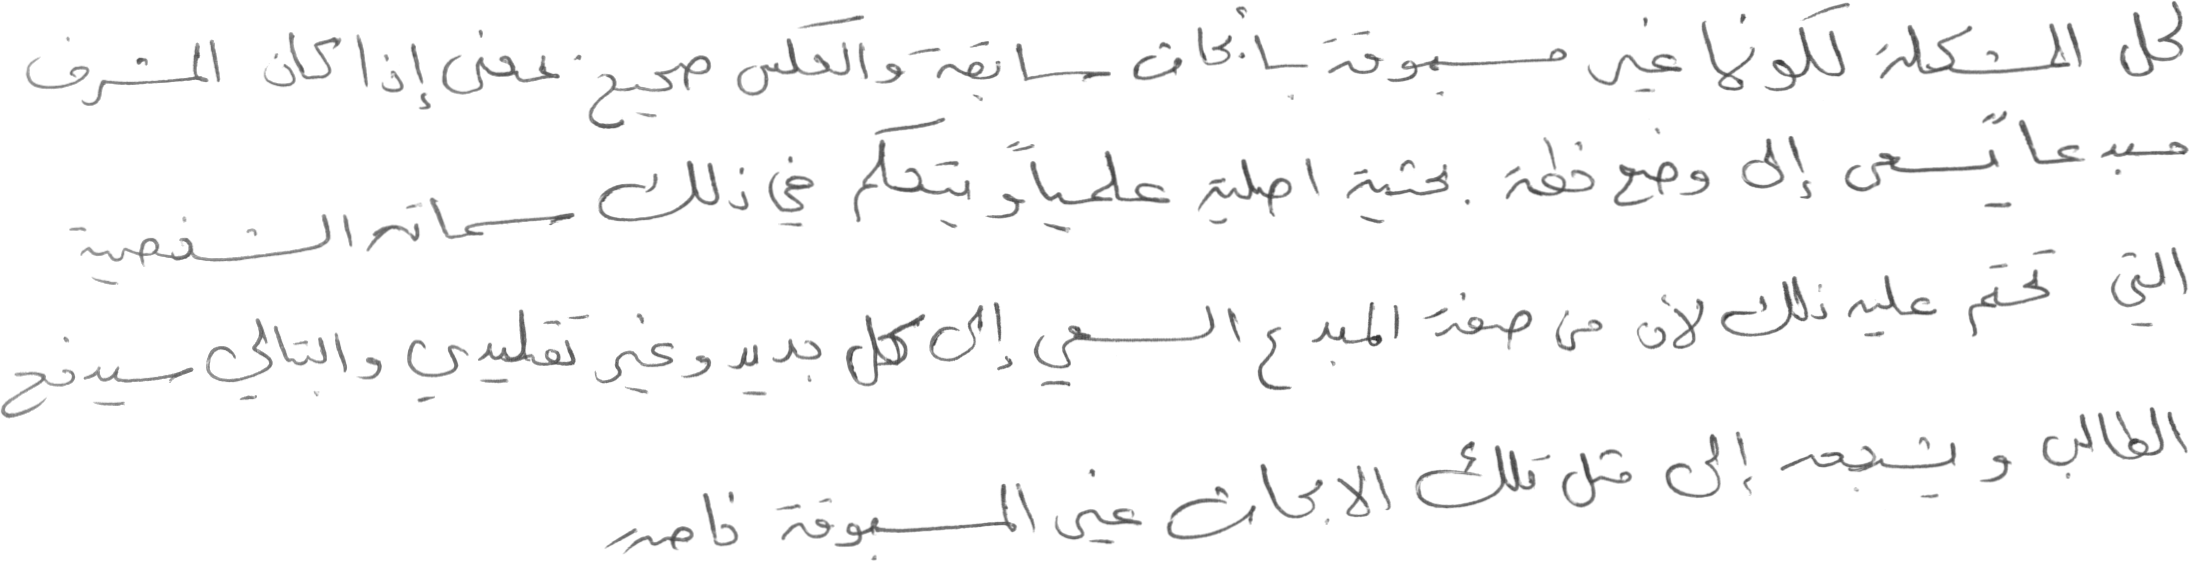 لحل المشكلة لكونها غير مسبوقة بأبحاث سابقة والعكس صحيح. بمعنى إذا كان المشرف
مبدعاً يسعى إلى وضع خطة بحثية اصلية علمياً ويتحكم في ذلك سماته الشخصية
التي تحتم عليه ذلك لأن من صفة المبدع السعي إلى كل جديد وغير تقليدي وبالتالي سيدفع
الطالب ويشجعه إلى مثل تلك الابحاث غير المسبوقة خاصة